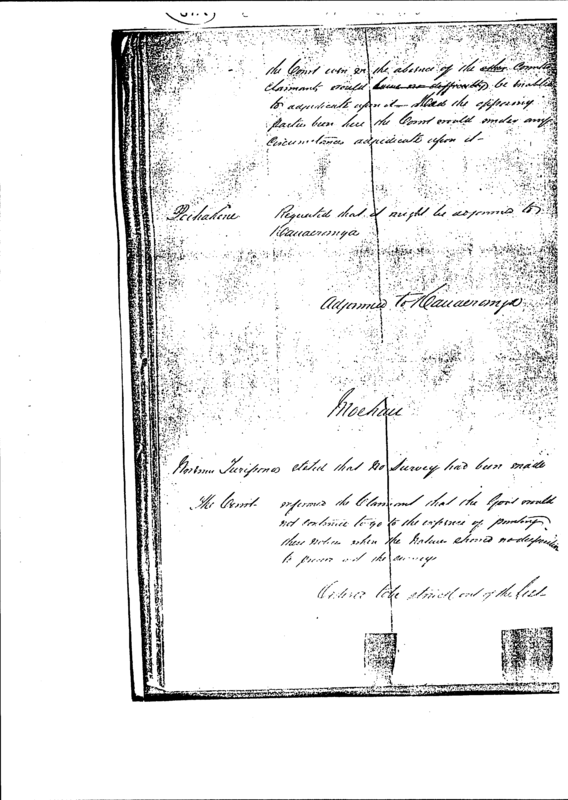 the Court even in the absence of the other Counter
claimants would have no difficulty be enabled
to adjudicate upon it – the opposing
parties been here the Court would under any
Circumstances adjudicate upon it –
Requested that it might be adjourned to
Kauaeranga
Adjourned to Kauaeranga
Moehau
stated that no Survey had been made
The Court informed the Claimant that the Govt would
not continue to go to the expense of printing
these notices when the Natives showed no disposition
to out the surveys
Ordered to be struck out of the List